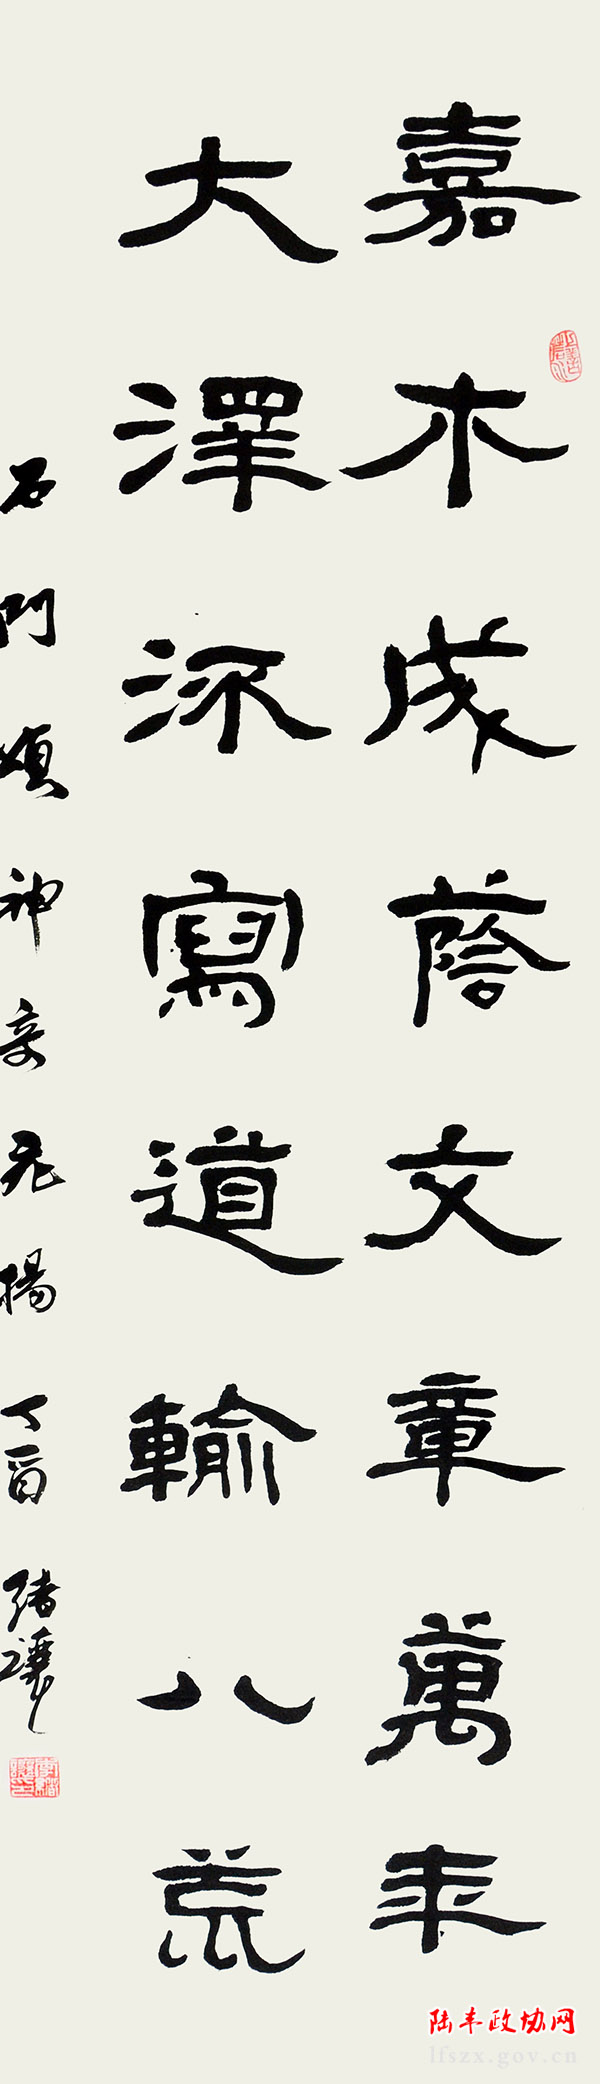 嘉木成蔭文章萬年
大澤寫道輸八荒
石門頌神飛揚 丁酉
陆丰政协网
lfszx.gov.cn